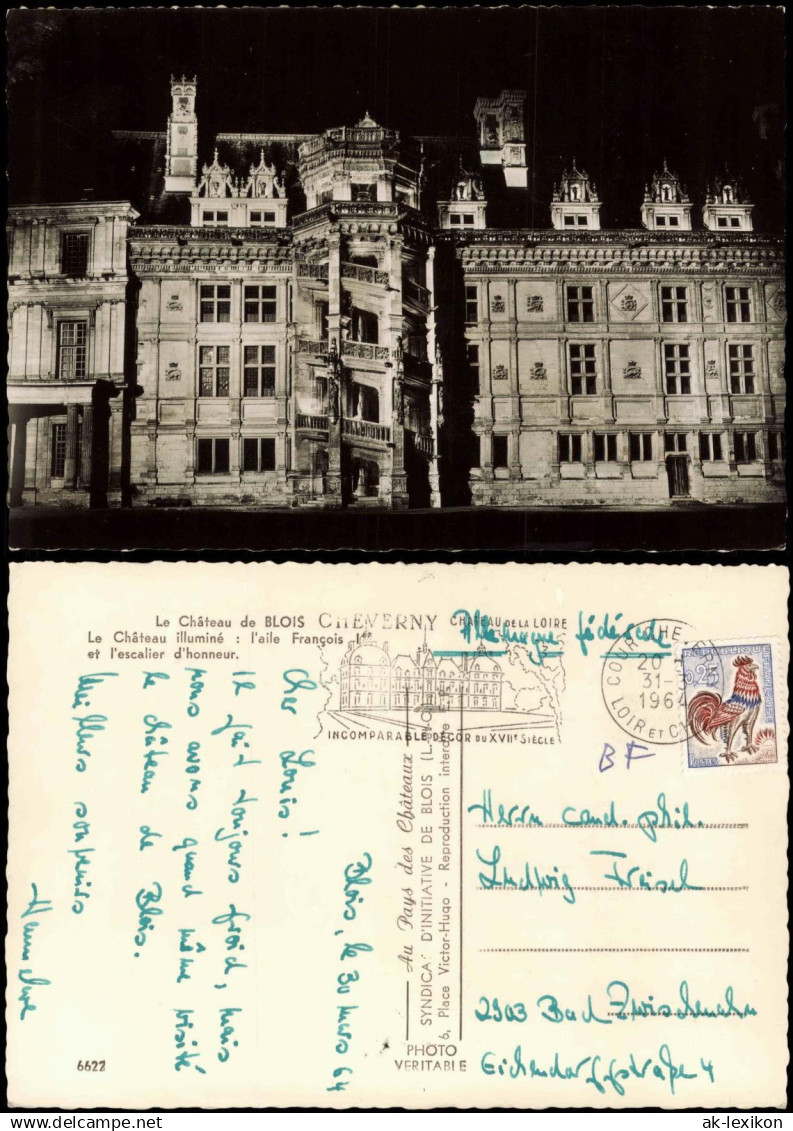 Le Château de BLOIS
Le Château illuminé : l'aile François Ier
et l'escalier d'honneur.
CHEVERNY CHÂTEAU DE LA LOIRE
INCOMPARABLE DÉCOR DU XVIIe SIÈCLE
Allemagne fédérale
COUR-CHEVERNY
20 H
31-3
1964
LOIR ET CHER
REPUBLIQUE
0,25
POSTES
BF
Blois, le 30 mars 64
Cher Louis!
Il fait toujours froid, mais
nous avons quand même visité
le château de Blois.
Meilleurs souvenirs
Au Pays des Châteaux
SYNDICAT D'INITIATIVE DE BLOIS
6, Place Victor-Hugo - Reproduction interdite
PHOTO
VERITABLE
Herrn cand. phil.
Ludwig
2903 Bad Zwischenahn
Eichendorffstraße 4
6622
ak-lexikon